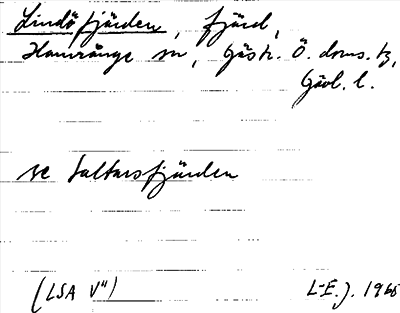 Lindöfjärden, fjärd,
Hamrånge sn, Gästr. Ö. doms. tg,
Gävl. l.
se Saltarsfjärden
(LSA V") L-E. J. 1965